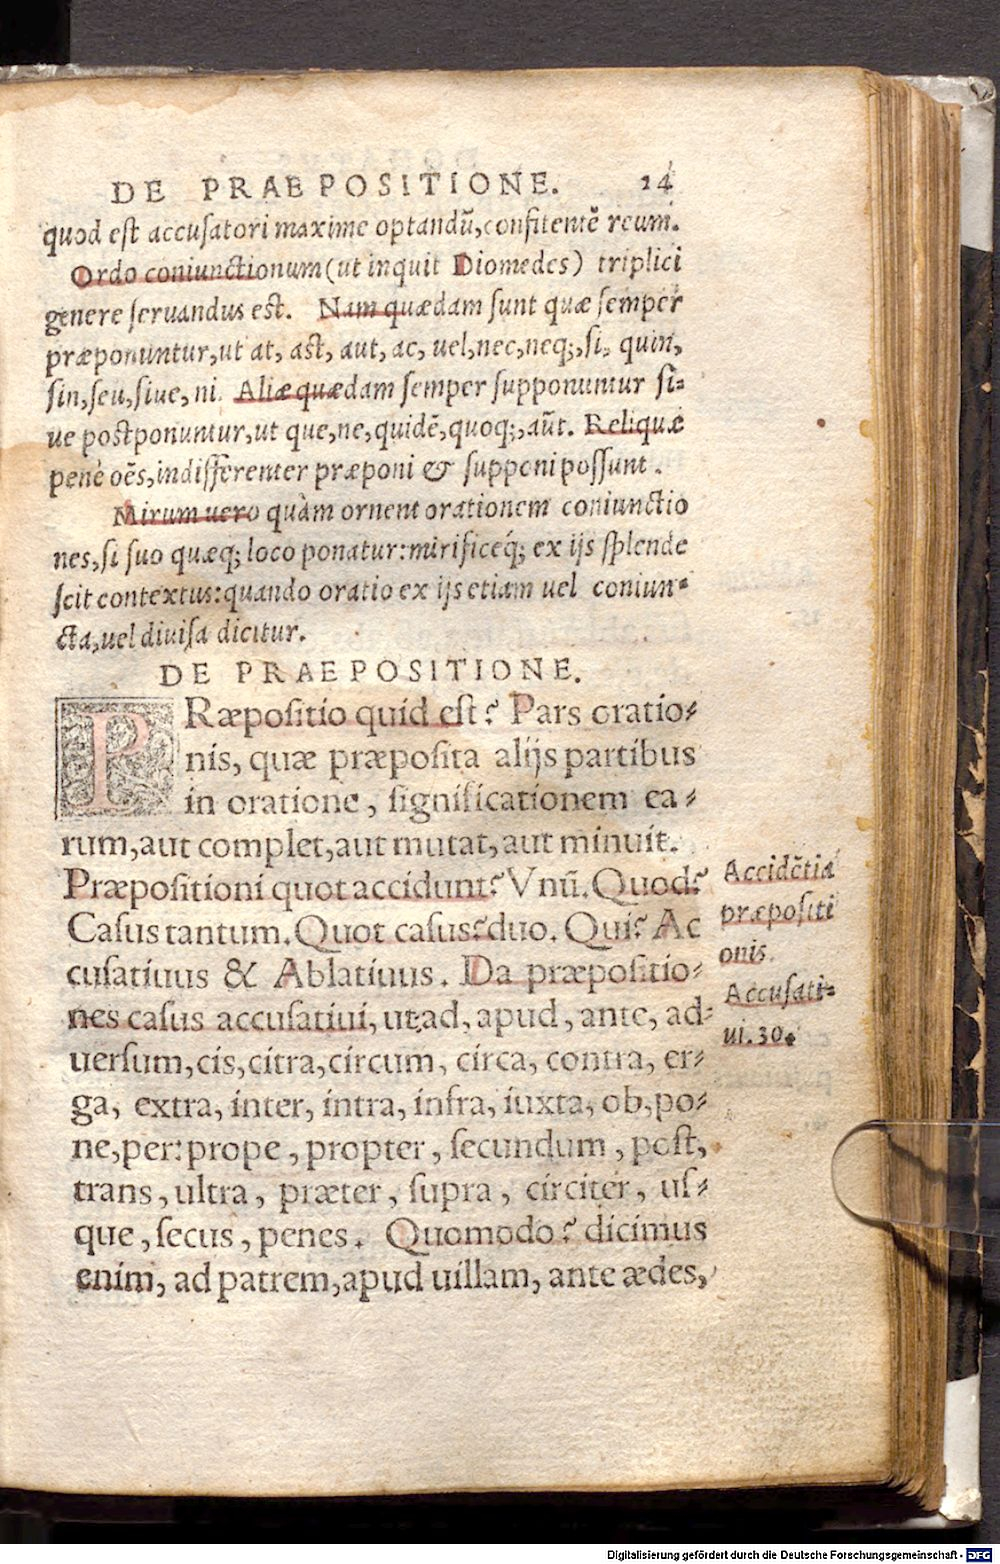 DE PRAEPOSITIONE. 24
quod est accusatori maxime optandũ, confitentẽ reum.
Ordo coniunctionum (ut inquit Diomedes) triplici
genere seruandus est. Nam quædam sunt quæ semper
præponuntur, ut at, ast, aut, ac, uel, nec, neq;, si, quin,
sin, seu, siue, ni. Aliæ quædam semper supponuntur si-
ue postponuntur, ut que, ne, quidẽ, quoq;, aũt. Reliquæ
penè oẽs, indifferenter præponi & supponi possunt.
Mirum uero quàm ornent orationem coniunctio
nes, si suo quæq; loco ponatur: mirificeq́; ex ijs splende
scit contextus: quando oratio ex ijs etiam uel coniun-
cta, uel diuisa dicitur.
DE PRAEPOSITIONE.
PRæpositio quid est? Pars oratio-
nis, quæ præposita alijs partibus
in oratione, significationem ea-
rum, aut complet, aut mutat, aut minuit.
Præpositioni quot accidunt? Vnũ. Quod?
Casus tantum. Quot casus? duo. Qui? Ac
cusatiuus & Ablatiuus. Da præpositio-
nes casus accusatiui, ut, ad, apud, ante, ad-
uersum, cis, citra, circum, circa, contra, er-
ga, extra, inter, intra, infra, iuxta, ob, po-
ne, per: prope, propter, secundum, post,
trans, ultra, præter, supra, circiter, us-
que, secus, penes. Quomodo? dicimus
enim, ad patrem, apud uillam, ante ædes,
Accidẽtia
præpositi
onis.
Accusati-
ui. 30.
Digitalisierung gefördert durch die Deutsche Forschungsgemeinschaft - DFG